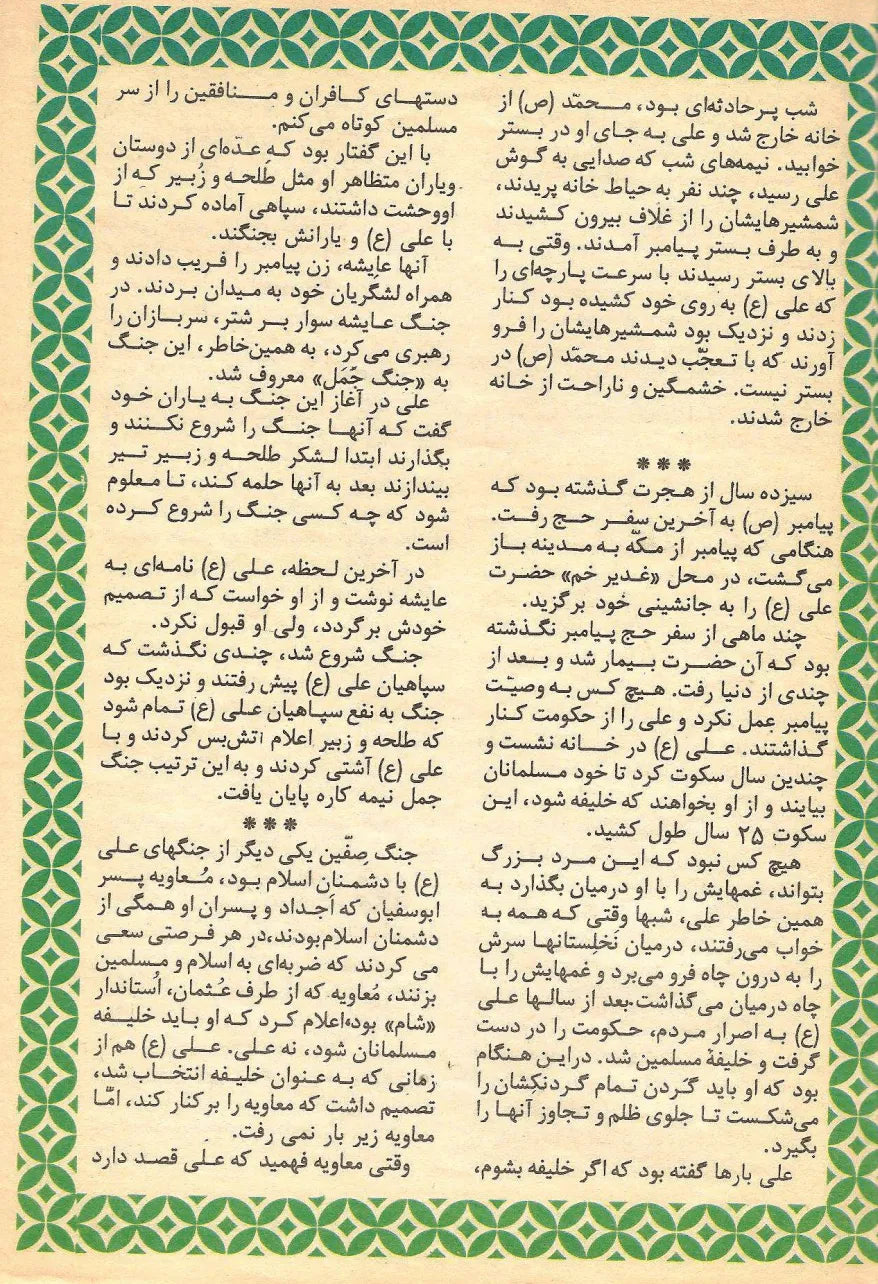 شب پرحادثه‌ای بود، محمّد (ص) از
خانه خارج شد و علی به جای او در بستر
خوابید. نیمه‌های شب که صدایی به گوش
علی رسید، چند نفر به حیاط خانه پریدند،
شمشیرهایشان را از غلاف بیرون کشیدند
و به طرف بستر پیامبر آمدند. وقتی به
بالای بستر رسیدند با سرعت پارچه‌ای را
که علی (ع) به روی خود کشیده بود کنار
زدند و نزدیک بود شمشیرهایشان را فرو
آورند که با تعجّب دیدند محمّد (ص) در
بستر نیست. خشمگین و ناراحت از خانه
خارج شدند.
***
سیزده سال از هجرت گذشته بود که
پیامبر (ص) به آخرین سفر حج رفت.
هنگامی که پیامبر از مکّه به مدینه باز
می‌گشت، در محل «غدیر خم» حضرت
علی (ع) را به جانشینی خود برگزید.
چند ماهی از سفر حج پیامبر نگذشته
بود که آن حضرت بیمار شد و بعد از
چندی از دنیا رفت. هیچ کس به وصیّت
پیامبر عمل نکرد و علی را از حکومت کنار
گذاشتند. علی (ع) در خانه نشست و
چندین سال سکوت کرد تا خود مسلمانان
بیایند و از او بخواهند که خلیفه شود، این
سکوت ۲۵ سال طول کشید.
هیچ کس نبود که این مرد بزرگ
بتواند، غمهایش را با او درمیان بگذارد به
همین خاطر علی، شبها وقتی که همه به
خواب می‌رفتند، درمیان نخلِستانها سرش
را به درون چاه فرو می‌برد و غمهایش را با
چاه درمیان می‌گذاشت.بعد از سالها علی
(ع) به اصرار مردم، حکومت را در دست
گرفت و خلیفهٔ مسلمین شد. دراین هنگام
بود که او باید گَردن تمام گردنکِشان را
می‌شکست تا جلوی ظلم و تجاوز آنها را
بگیرد.
علی بارها گفته بود که اگر خلیفه بشوم،
دستهای کافران و منافقین را از سر
مسلمین کوتاه می‌کنم.
با این گفتار بود که عدّه‌ای از دوستان
ویاران متظاهر او مثل طَلحه و زُبیر که از
اووحشت داشتند، سپاهی آماده کردند تا
با علی (ع) و یارانش بجنگند.
آنها عایشه، زن پیامبر را فریب دادند و
همراه لشگریان خود به میدان بردند. در
جنگ عایشه سوار بر شتر، سربازان را
رهبری می‌کرد، به همین‌خاطر، این جنگ
به «جنگ جَمَل» معروف شد.
علی در آغاز این جنگ به یاران خود
گفت که آنها جنگ را شروع نکنند و
بگذارند ابتدا لشکر طلحه و زبیر تیر
بیندازند بعد به آنها حلمه کند، تا معلوم
شود که چه کسی جنگ را شروع کرده
است.
در آخرین لحظه، علی (ع) نامه‌ای به
عایشه نوشت و از او خواست که از تصمیم
خودش برگردد، ولی او قبول نکرد.
جنگ شروع شد، چندی نگذشت که
سپاهیان علی (ع) پیش رفتند و نزدیک بود
جنگ به نفع سپاهیان علی (ع) تمام شود
که طلحه و زبیر اعلام اتش‌بس کردند و با
علی (ع) آشتی کردند و به این ترتیب جنگ
جمل نیمه کاره پایان یافت.
***
جنگ صِفّین یکی دیگر از جنگهای علی
(ع) با دشمنان اسلام بود، مُعاویه پسر
ابوسفیان که اَجداد و پسران او همگی از
دشمنان اسلام‌بودند،در هر فرصتی سعی
می کردند که ضربه‌ای به اسلام و مسلمین
بزنند، مُعاویه که از طرف عُثمان، اُستاندار
«شام» بود،اعلام کرد که او باید خلیفه
مسلمانان شود، نه علی. علی (ع) هم از
زمانی که به عنوان خلیفه انتخاب شد،
تصمیم داشت که معاویه را برکنار کند، امّا
معاویه زیر بار نمی رفت.
وقتی معاویه فهمید که علی قصد دارد